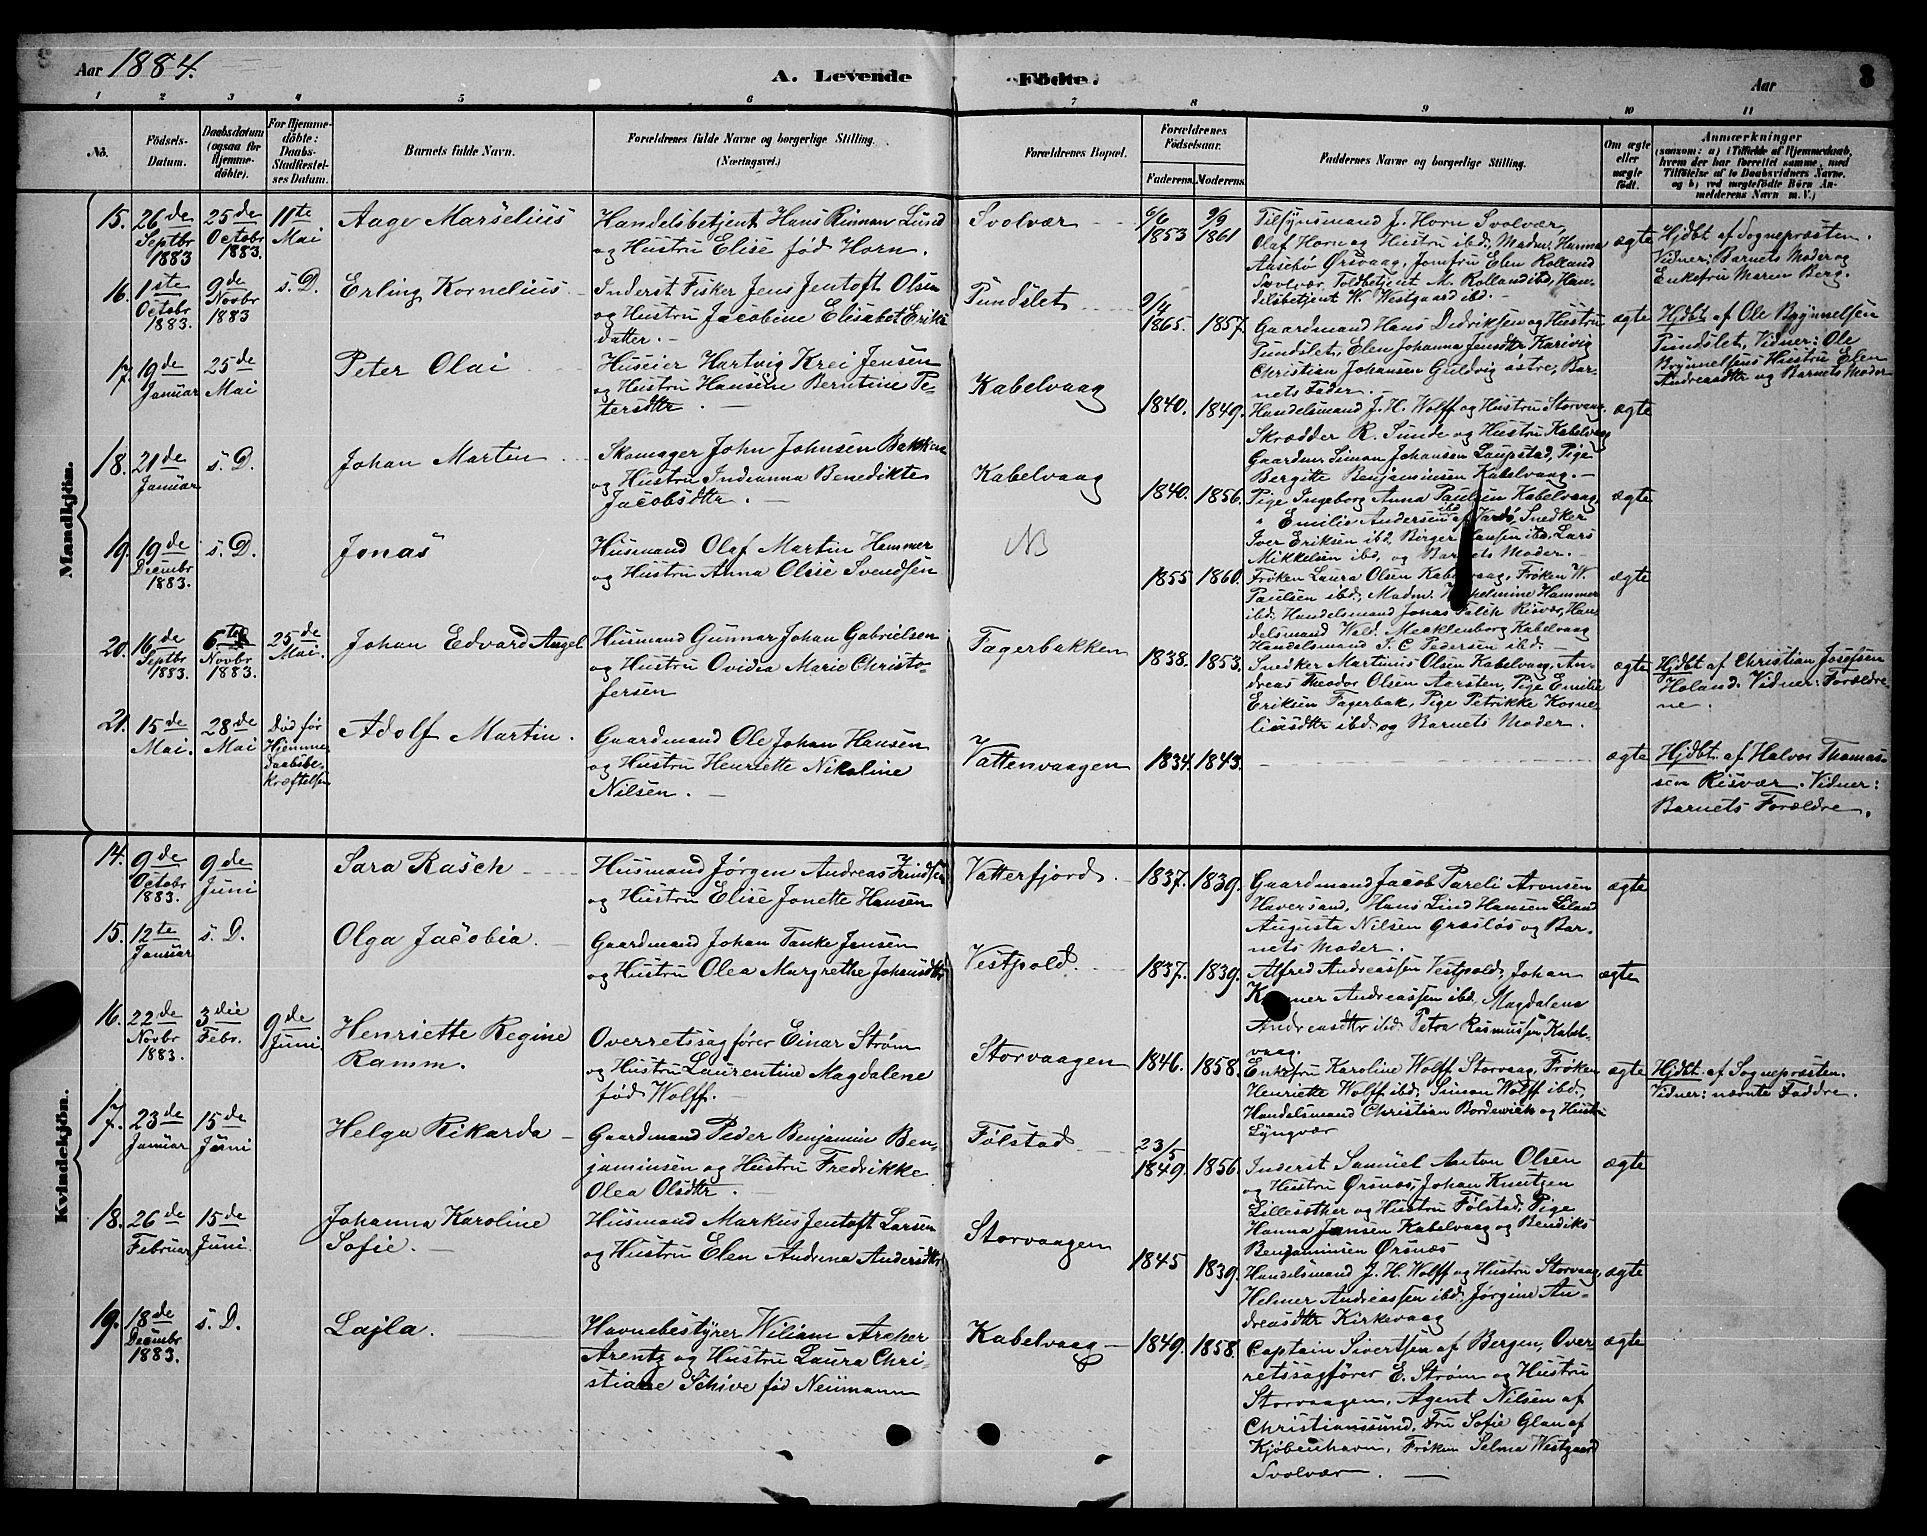 Aar 1884.
A. Levende Födte.
Aar
8
1 2 3 4 5 6 7 8 9 10 11
No.
Födsels-
Datum.
Daabsdatum
(ogsaa for
Hjemme-
döbte).
For Hjemme-
döbte:
Daabs-
Stadfæstel-
ses Datum.
Barnets fulde Navn.
Forældrenes fulde Navne og borgerlige Stilling.
(Næringsvei.)
Forældrenes Bopæl.
Forældrenes
Födselsaar.
Faderens. Moderens.
Faddernes Navne og borgerlige Stilling.
Om ægte
eller
uægte
födt.
Anmærkninger
(saasom: a) i Tilfælde af Hjemmedaab,
hvem der har forrettet samme, med
Tilföielse af to Daabsvidners Navne.
og b) ved uægtefödte Börn An-
melderens Navn m. V.)
Mandkjön.
15.
26de
Septbr
1883
25de
Octobr
1883.
11te
Mai
Aage Marselius
Handelsbetjent Hans Rinnan Lund
og Hustru Elise fød Horn.
Svolvær
6/6
1853
9/9
1861
Tilsynsmand J. Horn Svolvær,
Olaf Horn og Hustru ibd. Madm. Hanna
Ørsvaag, Jomfru Elen Rolland
Svolvær Toldbetjent M. Rolland ibd, Han-
delsbetjent W. Westgaard ibd.
ægte
Hjdbt af Sognepræsten.
Vidner: Barnets Moder og
Enkefru Maren Berg.
16.
1ste
Octobr
1883.
9de
Novbr
1883
s. D.
Erling Kornelius
Inderst Fisker Jens Jentoft Olsen
og Hustru Jacobine Elisabet Eriks
datter.
Pundslet
9/4
1865. 1857.
Gaardmand Hans Didriksen og Hustru
Pundslet, Elen Johanna Jensdtr Karivig
Christian Johansen Guldvig østre, Bar-
nets Fader.
ægte
Hjdbt af Ole Brynnelsen
Pundslet, Vidner: Ole
Brynnelsens Hustru Elen
Andreasdtr og Barnets Moder
17.
19de
Januar
25de
Mai
Peter Olai
Huseier Hartvig Krei Jensen
og Hustru Hansine Berntine Pe-
tersdtr.
Kabelvaag
1840. 1849.
Handelsmand J. H. Wolff og Hustru Storvaag.
Skrædder R. Sunde og Hustru Kabelvaag
Gaardm. Simon Johansen Laupstad, Pige
Bergitte Benjaminsen Kabelvaag.
ægte
18.
21de
Januar
s. D.
Johan Martin
Skomager John Johnsen Bakken
og Hustru Indianna Benedikte
Jacobsdtr.
Kabelvaag
1840. 1856.
Pige Ingeborg Anna Paulsen Kabelvaag,
" Emilie Andersen ibd af Vardö, Snedker
Iver Eriksen ibd. Birger Hansen ibd. Lars
Mikkelsen ibd. og Barnets Moder.
ægte
19.
19de
Decmbr
1883.
s. D.
Jonas
Husmand Olaf Martin Hammer
og Hustru Anna Olise Svendsen
NB
1855 1860.
Frøken Laura Olsen Kabelvaag, Frøken W.
Paulsen ibd, Madm. Hammer
ibd. Handelsmand Jonas Falch Risvær, Han-
delsmand Wald. Mecklenborg Kabelvaag
Handelsmand J. C Pedersen ibd.
ægte
20.
16de
Septbr
1883.
6te
Novbr
1883.
25de
Mai.
Johan Edvard Angel
Husmand Gunnar Johan Gabrielsen
og Hustru Ovidia Marie Christo-
fersen
Fagerbakken
1838. 1853.
Snedker Martinus Olsen Kabelvaag, An-
dreas Theodor Olsen Aarsten, Pige Emilie
Eriksen Fagerbak, Pige Petrikke Korne-
liusdtr ibd. og Barnets Moder.
ægte
Hjdbt af Christian Josefsen
Holand. Vidner: Forældre-
ne.
21.
15de
Mai.
28de
Mai
Död før
Hjemme-
daabsbe-
kræftelsen
Adolf Martin.
Gaardmand Ole Johan Hansen
og Hustru Henriette Nikoline
Nilsen.
Vattenvaagen
1834. 1843.
ægte
Hjdbt. af Halvor Thomas-
sen Risvær. Vidner:
Barnets Forældre.
Kvindekjön.
14.
9de
Octobr
1883.
9de
Juni
Sara Rasch
Husmand Jørgen Andreas
og Hustru Elise Jonette Hansen
Vatterfjord.
1837. 1839.
Gaardmand Jacob Pareli Aronsen
Haversand, Hans Lind Hansen
Augusta Nilsen Grasløs og Bar-
nets Moder.
ægte
15.
12te
Januar
s. D.
Olga Jacobia.
Gaardmand Johan Tanke Jensen
og Hustru Olea Margrethe Johansdtr
Vestpold.
1837. 1839.
Alfred Andreassen Vestpold, Johan
Andreassen ibd, Magdalena
Andreasdtr ibd. Petra Rasmussen, Kabel-
vaag.
ægte
16.
22de
Novbr
1883.
3die
Febr.
9de
Juni
Henriette Regine
Ramm.
Overretssagfører Einar Strøm
og Hustru Laurentine Magdalene
fød Wolff.
Storvaagen
1846. 1858.
Enkefru Karoline Wolff Storvaag, Frøken
Henriette Wolff ibd, Simon Wolff ibd.,
Handelsmand Christian Bordewick og Hustru
Lyngvær
ægte
Hjdbt af Sognepræsten.
Vidner: nævnte Faddre.
17.
23de
Januar
15de
Juni
Helga Rikarda
Gaardmand Peder Benjamin Ben-
jaminsen og Hustru Fredrikke
Olea Olsdtr.
Følstad
23/5
1849. 1856.
Inderst Samuel Anton Olsen
og Hustru Ørsnæs, Johan Knutzen
og Hustru Følstad, Pige
Hanna Jansen Kabelvaag og Bendiks
Benjaminsen Ørsnæs
ægte
18.
26de
Februar
15de
Juni.
Johanna Karoline
Sofie.
Husmand Markus Jentoft Larsen
og Hustru Elen Andrina Andersdtr
Storvaagen
1845 1839.
Handelsmand J. H. Wolff og Hustru Storvaag,
Helmer Andreassen ibd. Jørgine An-
dreasdtr Kirkevaag
ægte
19.
18de
Decmbr
1883.
s. D.
Lajla.
Havnebestyrer Wiliam Archer
Arentz og Hustru Laura Chri-
stiane Schive fød Neumann
Kabelvaag
1849. 1858.
Captain Sivertsen af Bergen, Over-
retssagfører E. Strøm og Hustru
Storvaagen, Agent Nilsen af
Christianssund, Fru Sofie Glan af
Kjøbenhavn, Frøken Selma Westgaard
Svolvær.
ægte